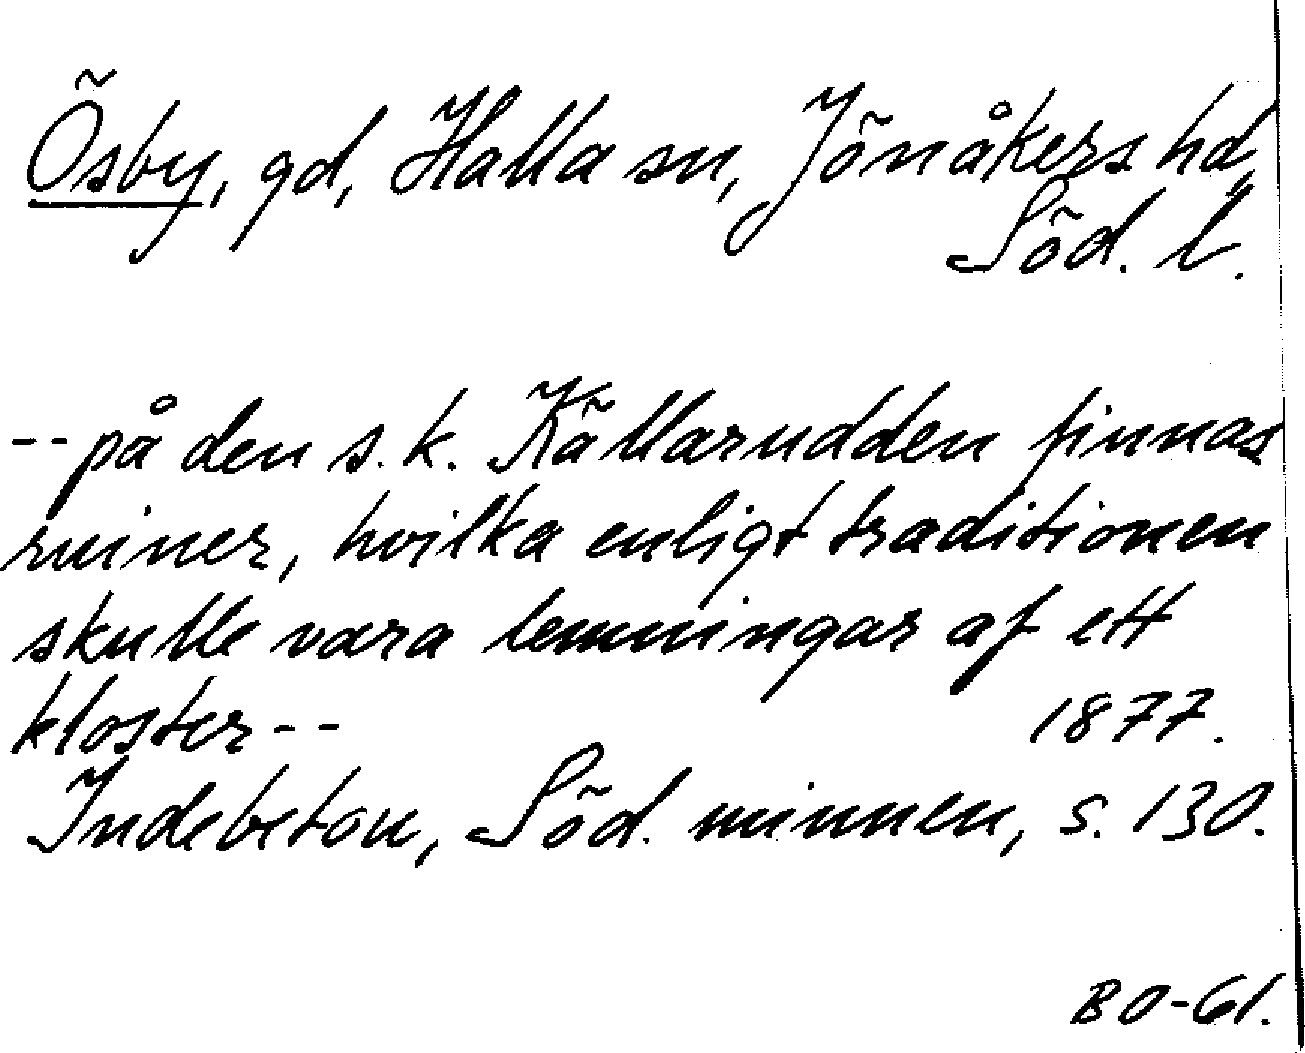 Ösby, gd, Halla sn, Jönåkers hd,
Söd. l.
-- på den s.k. Källarudden finnas
ruiner, hvilka enligt traditionen
skulle vara lemningar af ett
kloster -- 1877.
Indebetou, Söd. minnen, s. 130.
BO-61.